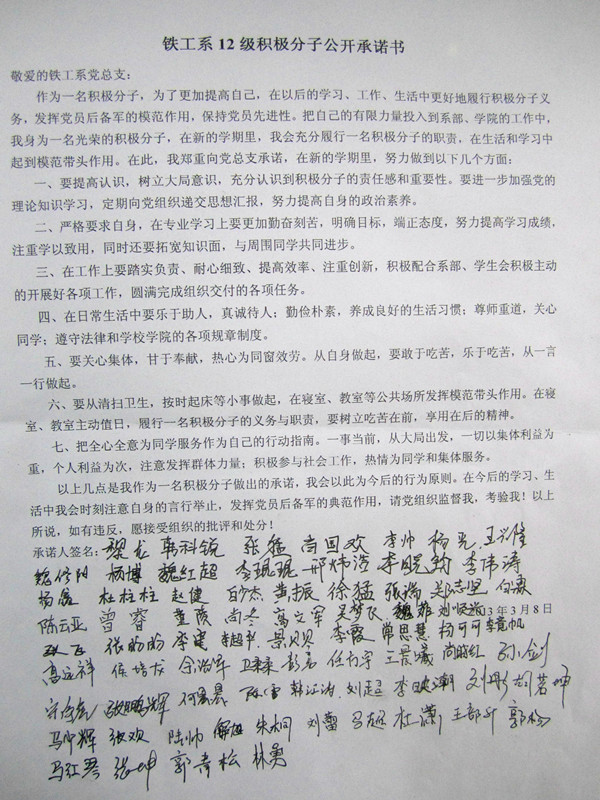 铁工系12级积极分子公开承诺书
敬爱的铁工系党总支：
作为一名积极分子，为了更加提高自己，在以后的学习、工作、生活中更好地履行积极分子义
务，发挥党员后备军的模范作用，保持党员先进性。把自己的有限力量投入到系部、学院的工作中，
我身为一名光荣的积极分子，在新的学期里，我会充分履行一名积极分子的职责，在生活和学习中
起到模范带头作用。在此，我郑重向党总支承诺，在新的学期里，努力做到以下几个方面：
一、要提高认识，树立大局意识，充分认识到积极分子的责任感和重要性。要进一步加强党的
理论知识学习，定期向党组织递交思想汇报，努力提高自身的政治素养。
二、严格要求自身，在专业学习上要更加勤奋刻苦，明确目标，端正态度，努力提高学习成绩，
注重学以致用，同时还要拓宽知识面，与周围同学共同进步。
三、在工作上要踏实负责、耐心细致、提高效率、注重创新，积极配合系部、学生会积极主动
的开展好各项工作，圆满完成组织交付的各项任务。
四、在日常生活中要乐于助人，真诚待人；勤俭朴素，养成良好的生活习惯；尊师重道，关心
同学；遵守法律和学校学院的各项规章制度。
五、要关心集体，甘于奉献，热心为同窗效劳。从自身做起，要敢于吃苦，乐于吃苦，从一言
一行做起。
六、要从清扫卫生，按时起床等小事做起，在寝室、教室等公共场所发挥模范带头作用。在寝
室、教室主动值日，履行一名积极分子的义务与职责，要树立吃苦在前，享用在后的精神。
七、把全心全意为同学服务作为自己的行动指南。一事当前，从大局出发，一切以集体利益为
重，个人利益为次，注意发挥群体力量；积极参与社会工作，热情为同学和集体服务。
以上几点是我作为一名积极分子做出的承诺，我会以此为今后的行为原则。在今后的学习、生
活中我会时刻注意自身的言行举止，发挥党员后备军的典范作用，请党组织监督我，考验我！以上
所说，如有违反，愿接受组织的批评和处分！
承诺人签名：黎龙 韩科锐 张猛 尚国欢 李帅 杨光
杨博 魏红超 李琨琨 邢炜浩 李晓 李伟涛
杨磊 杜柱柱 赵健 黄振 徐猛 张瑞 郑志坚
陈云亚 曾蓉 董薇 尚冬 高文军 吴梦飞 魏雅 3年3月8日
张盼盼 李建 李超 李霞 常思慧 杨可可
高运祥 侯培龙 彭君 王晨曦 孙剑
张鹏辉 何晨晨 刘超 刘彤
马中辉 张欢 陆帅 朱桐 刘蕾 杜潇 郭杨
马红琴 张坤 郭青松 林勇